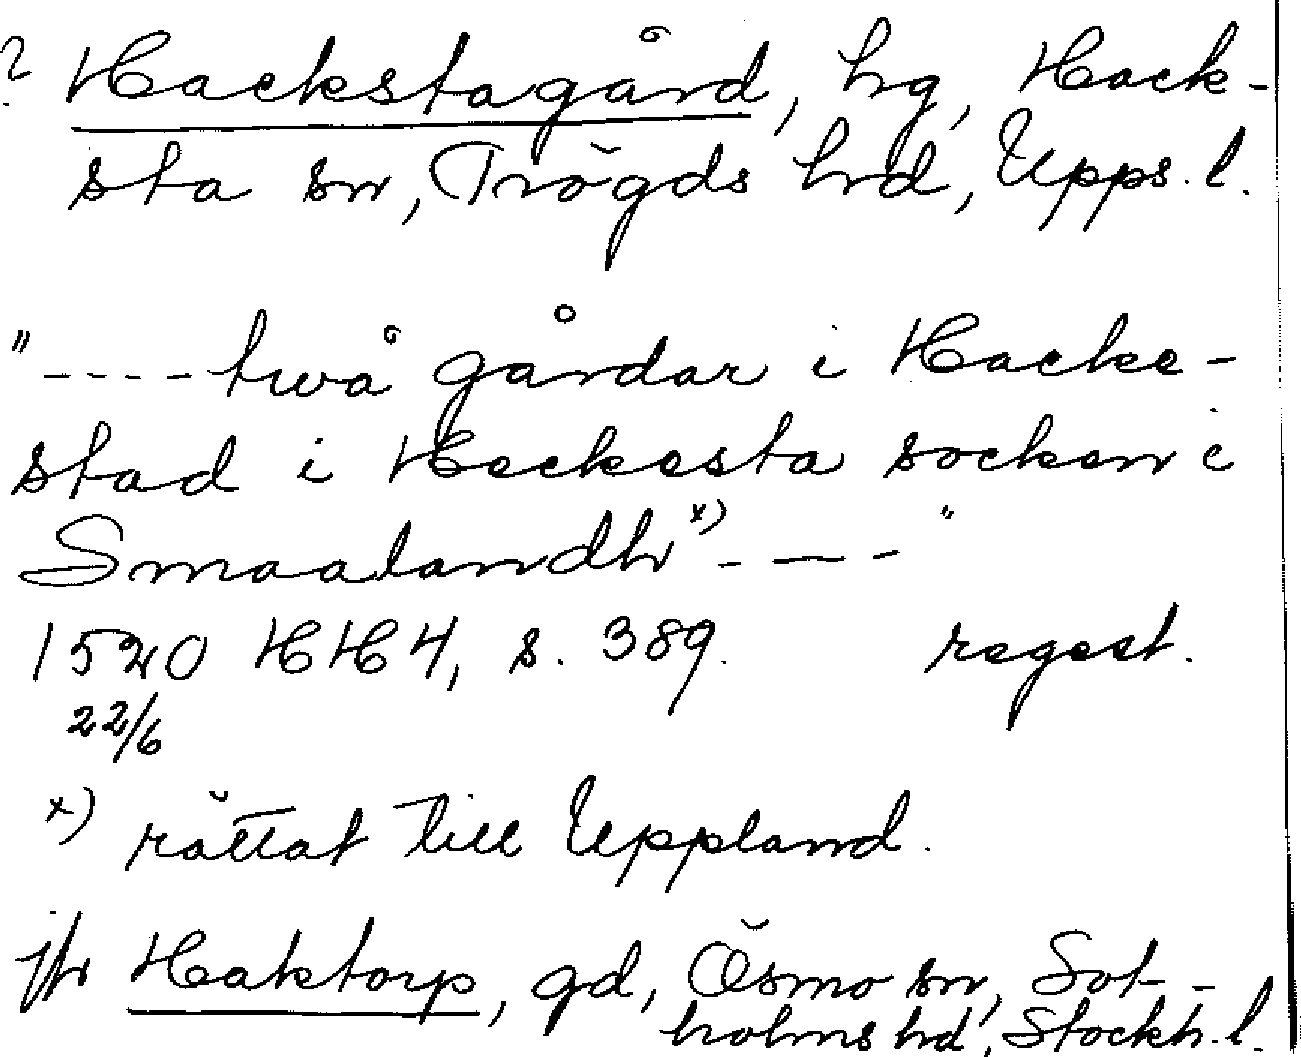 ? Hackstagård, hg, Hack-
sta sn, Trögds hd, Upps. l.
"---- twå gårdar i Hacke-
stad i Heckesta socken i
Smaalandh x) - - - "
1520 HH 4, s. 389. regest.
22/6
x) rättat till Uppland.
jfr Haktorp, gd, Ösmo sn, Sot-
holms hd, Stockh. l.